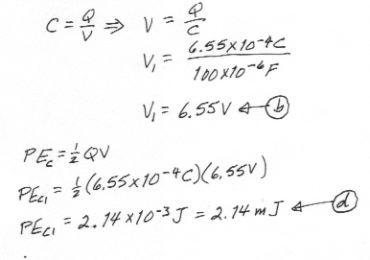 C = Q/V ⇒ V = Q/C
V₁ = 6.55x10⁻⁴C / 100x10⁻⁶F
V₁ = 6.55V ← b
PE_c = ½QV
PE_c₁ = ½(6.55x10⁻⁴C)(6.55V)
PE_c₁ = 2.14x10⁻³J = 2.14mJ ← d